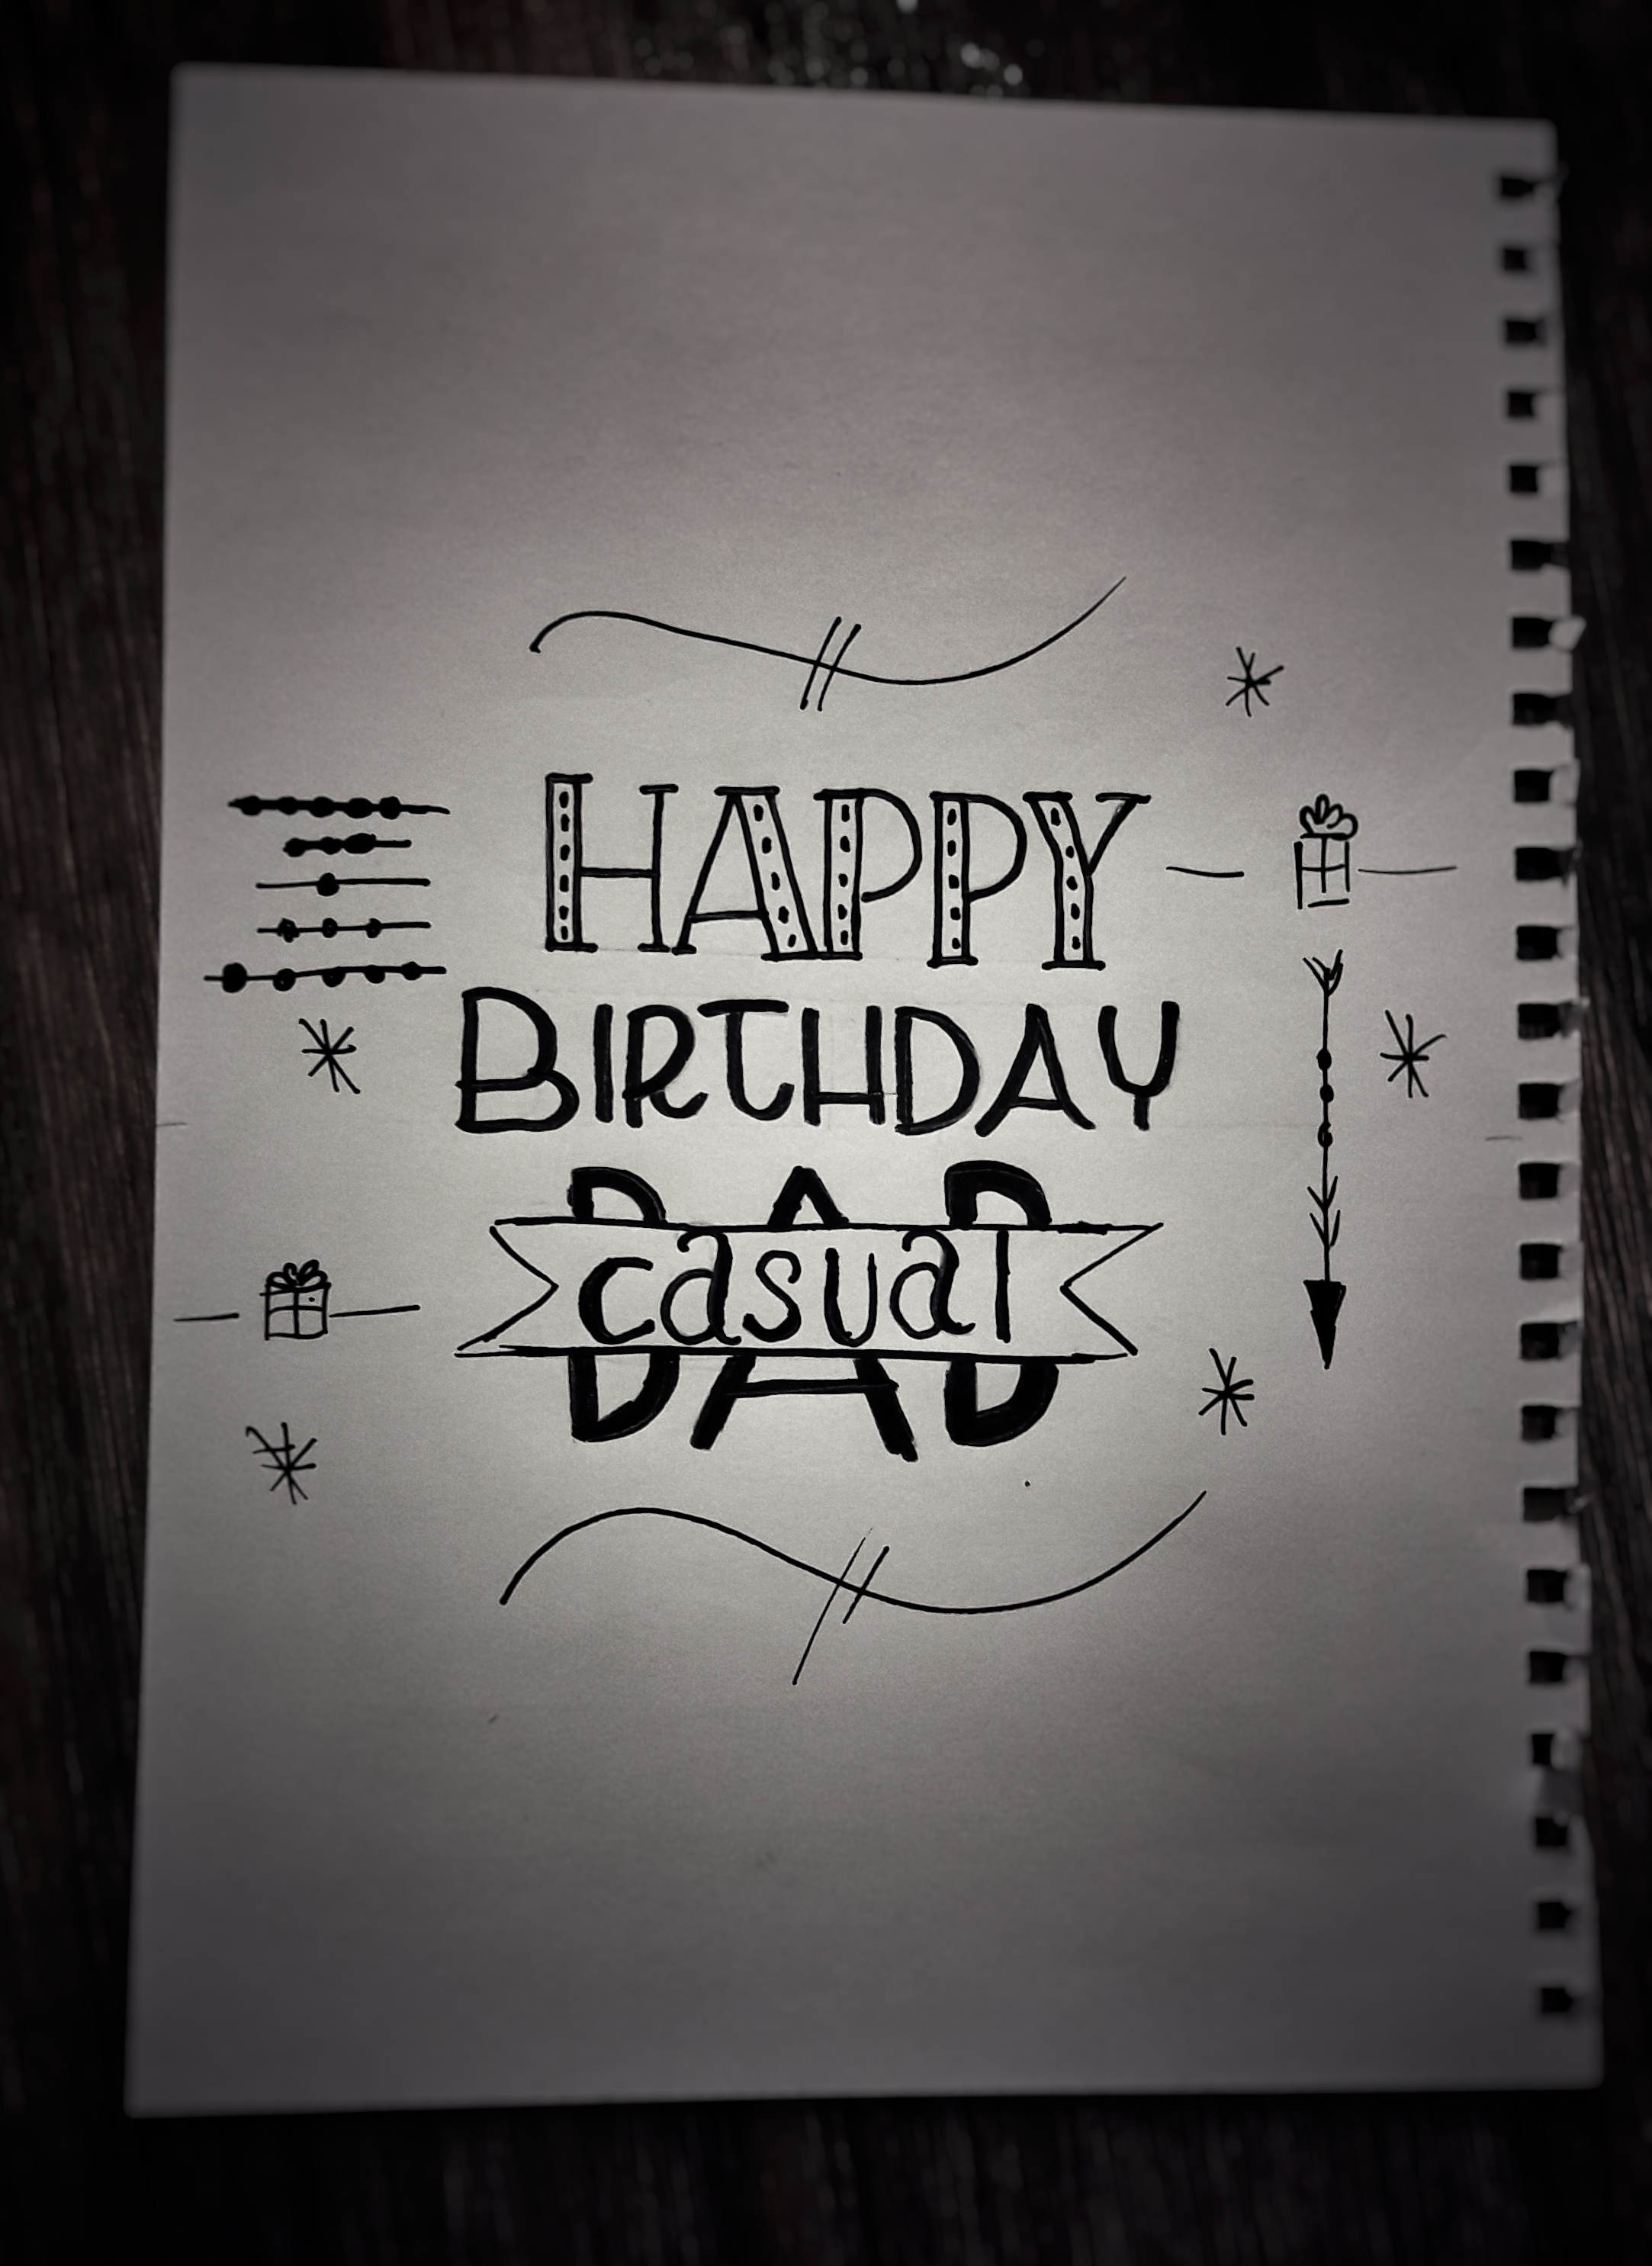 HAPPY
BIRTHDAY
DAD
casual